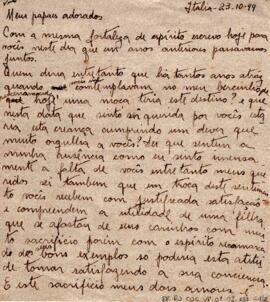 Italia - 23-10-44
Meus papaes adorados
Com a mesma fortaleza de espirito escrevo hoje para
vocês neste dia que em anos anteriores passavamos
juntos.
Quem diria entretanto que há tantos anos atrás
quando vocês contemplavam no meu bercinho
que hoje uma moça teria este destino? e que
nesta data que sinto ser querida por vocês esta
ria esta criança cumprindo um dever que
muito orgulha a vocês? Sei que sentem a
minha ausência como eu sinto imensa
mente a falta de vocês entretanto meus que
ridos sei tambem que em troca deste senti
to vocês recebem com justificada satisfação
e compreendem a utilidade de uma filha
que se afastou de seus carinhos com mui
to sacrificio porém com o espirito
dos bons exemplos so poderia esta atitude
de tomar satisfazendo a sua consciencia.
E este sacrificio meus dois amores